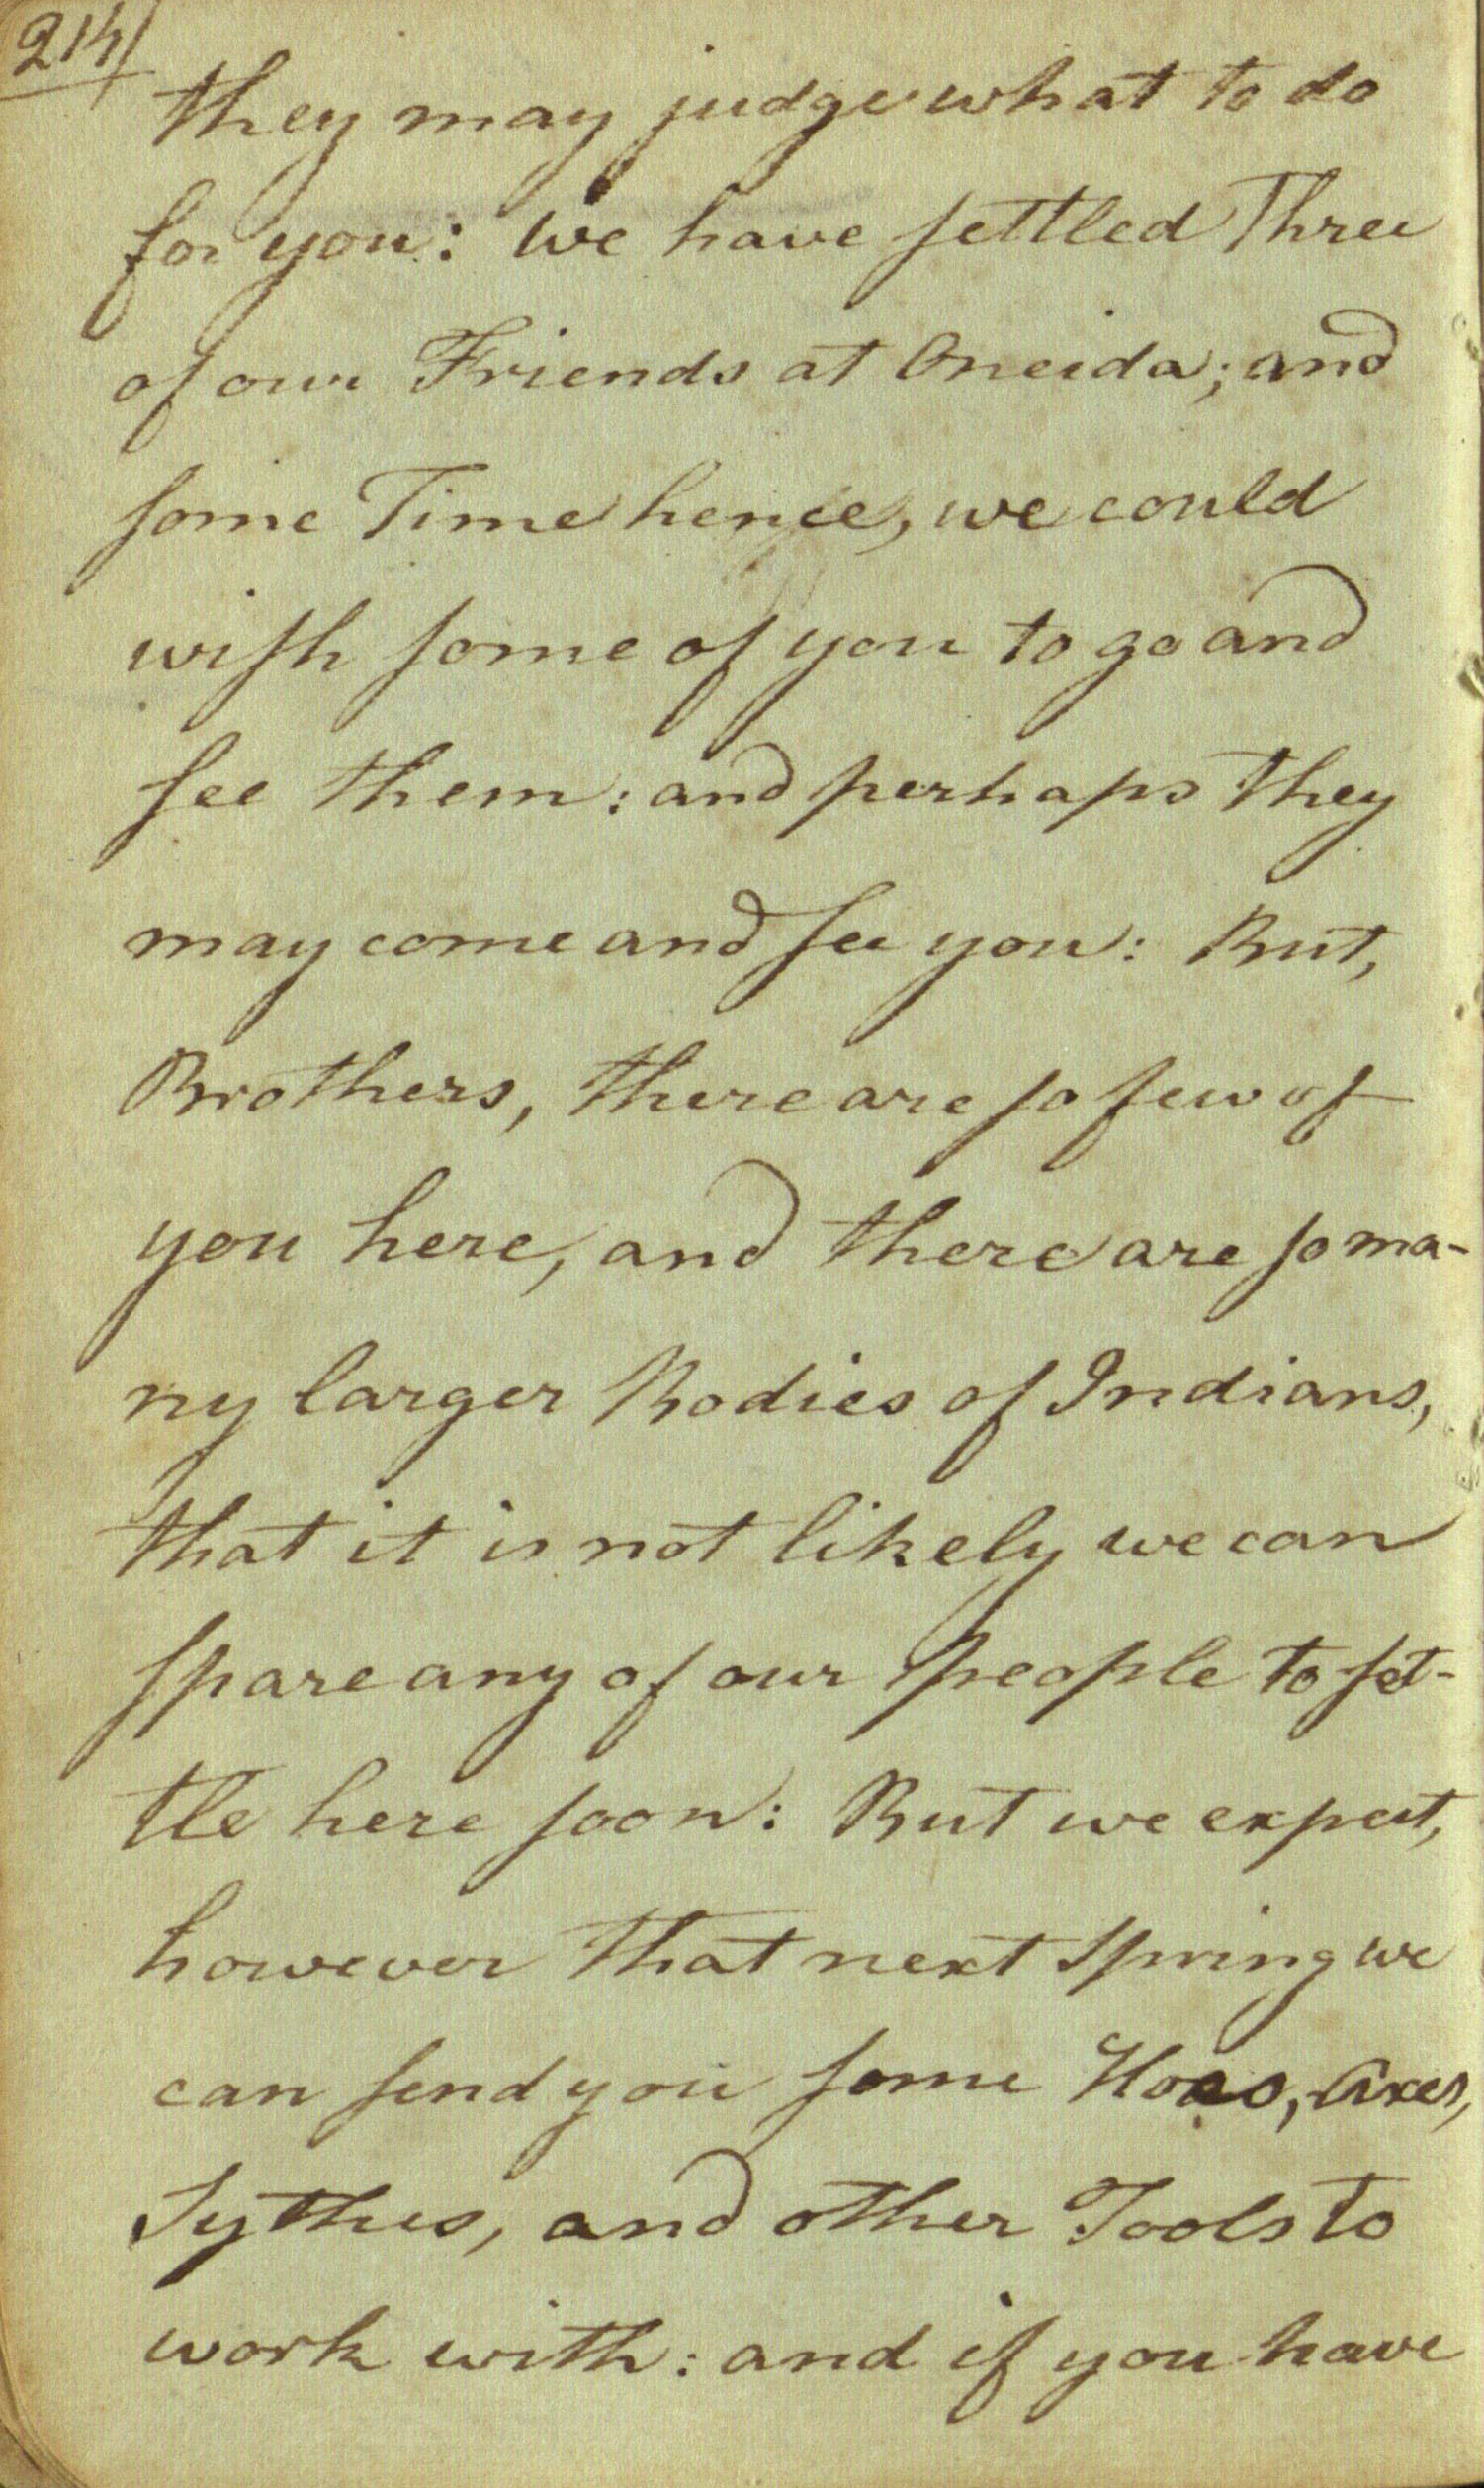 214
they may judge what to do
for you: we have settled Three
of our Friends at Oneida; and
some Time hence, we could
wish some of you to go and
see them: and perhaps they
may come and see you: But,
Brothers, there are so few of
you here, and there are so ma-
ny larger Bodies of Indians,
that it is not likely we can
spare any of our people to set-
tle here soon: But we expect,
however that next Spring we
can send you some Hoes, Axes,
Sythes, and other Tools to
work with: and if you have